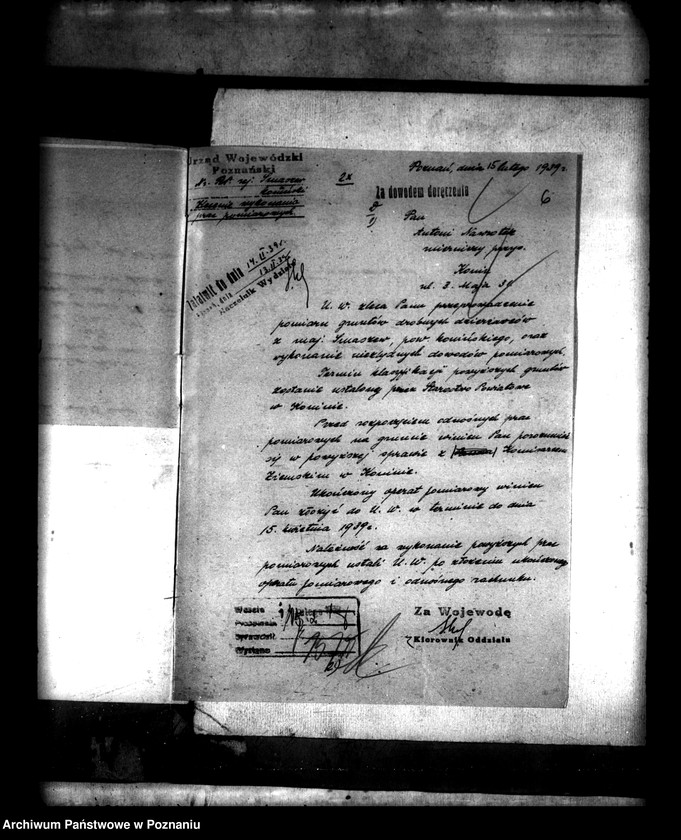 Urząd Wojewódzki
Poznański
Zlecenie wykonania
prac pomiarowych
2x
Poznań, dnia 15 lutego 1939 r.
Za dowodem doręczenia
6
Pan
Antoni Nawrotek
mierniczy przys.
Konin
ul. 3. Maja
Załatwił do dnia
Naczelnik Wydziału
U. W. zleca Panu przeprowadzenie
pomiaru gruntów drobnych dzierżawców
z maj. Smaszew, pow. konińskiego, oraz
wykonanie niezbędnych dowodów pomiarowych.
Termin klasyfikacji powyższych gruntów
zostanie ustalony przez Starostwo Powiatowe
w Koninie.
Przed rozpoczęciem odnośnych prac
pomiarowych na gruncie winien Pan porozumieć
się w powyższej sprawie z Komisarzem
Ziemskim w Koninie.
Ukończony operat pomiarowy winien
Pan złożyć do U. W. w terminie do dnia
15. kwietnia 1939 r.
Należność za wykonanie powyższych prac
pomiarowych ustali U. W. po złożeniu ukończonego
operatu pomiarowego i odnośnego rachunku.
Za Wojewodę
Kierownik Oddziału
Weszło
Przepisano
Sprawdził
Wysłano
Archiwum Państwowe w Poznaniu